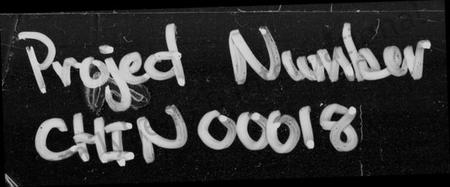 Project Number
CHIN 00018